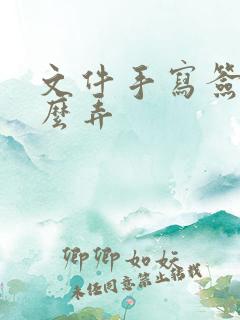 文件手寫簽
麼弄
卿卿如妘
未经同意禁止转载